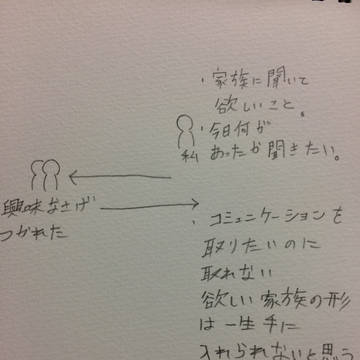 ・家族に聞いて
欲しいこと。
・今日何が
あったか聞きたい。
私
興味なさげ
つかれた
・コミュニケーションを
取りたいのに
取れない
欲しい家族の形
は一生手に
入れられないと思う